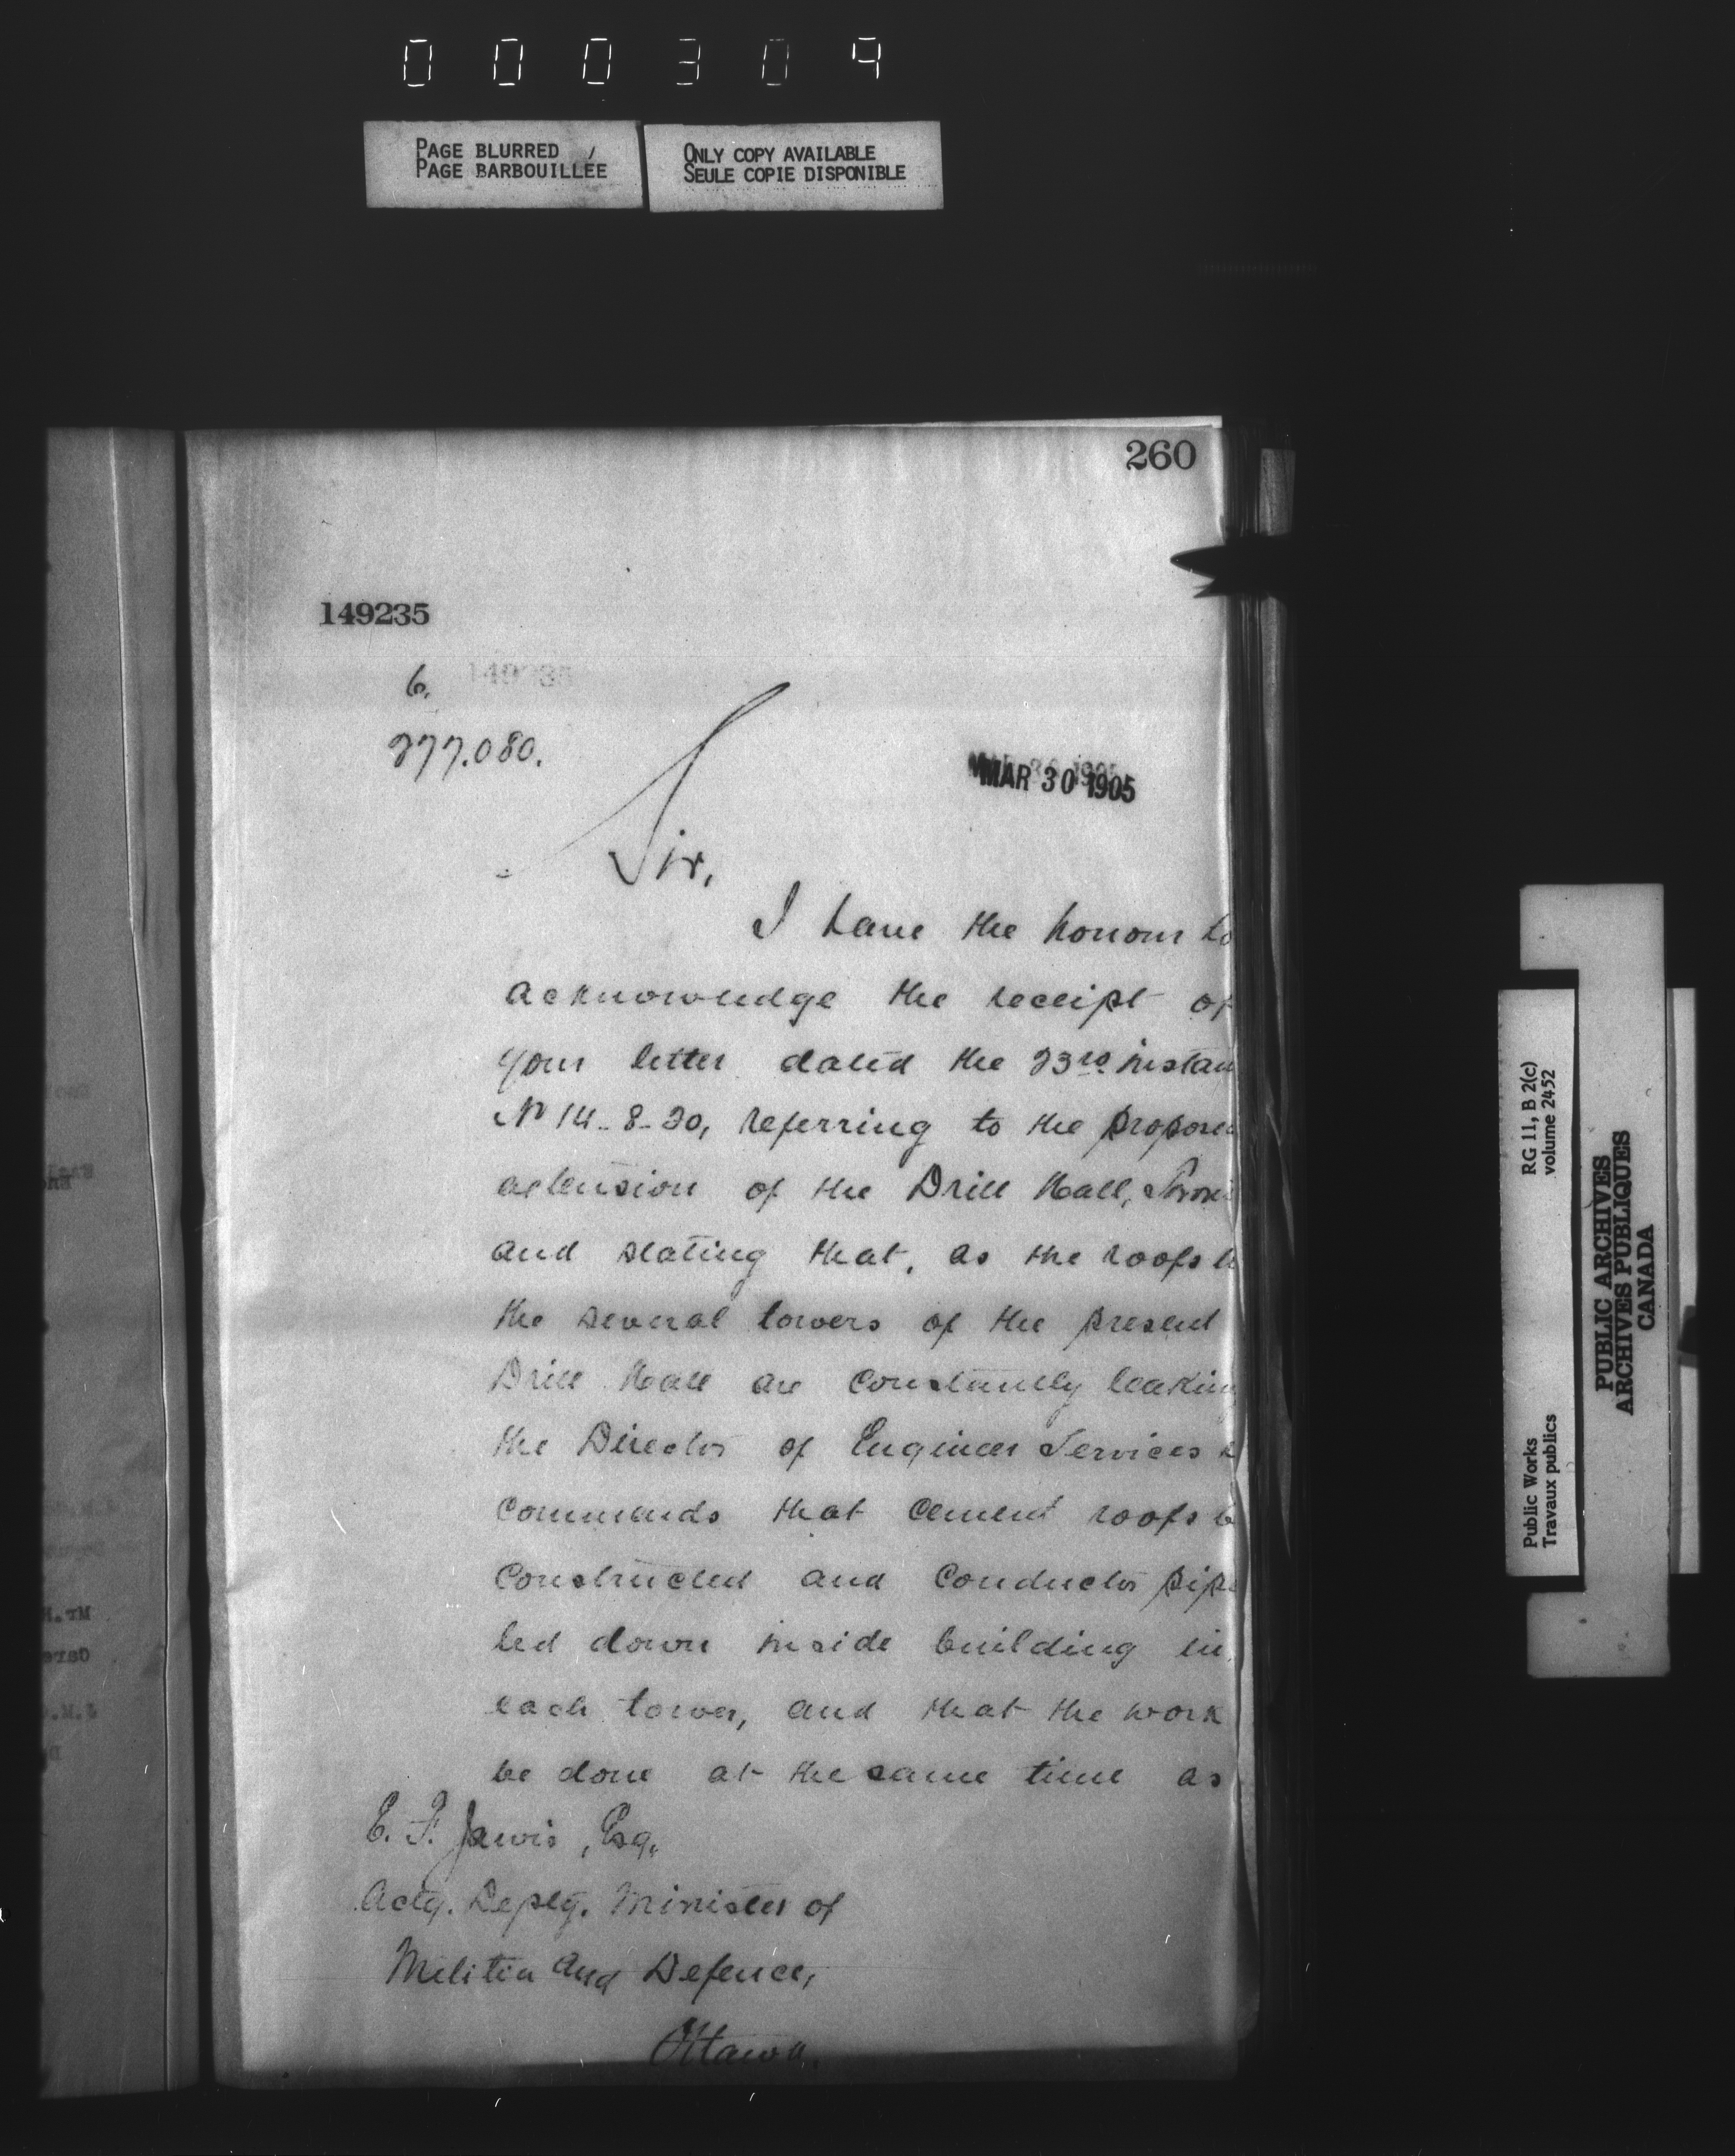 000309
PAGE BLURRED
PAGE BARBOUILLÉE
ONLY COPY AVAILABLE
SEULE COPIE DISPONIBLE
260
149235
6. 149235
277.080.
MAR 30 1905
Sir,
I have the honour to
acknowledge the receipt of
your letter dated the 23rd instan
No 14-8-20, referring to the propose
extension of the Drill Hall,
and stating that, as the roofs
the several towers of the present
Drill Hall are constantly leaking
the Director of Engineer Services
commends that cement roofs b
constructed and conductor pipe
led down inside building in
each tower, and that the work
be done at the same time as
E. F. Jarvis, Esq.
Actg. Depty. Minister of
Militia and Defence,
Ottawa.
RG 11, B 2(c)
volume 2452
Public Works
Travaux publics
PUBLIC ARCHIVES
ARCHIVES PUBLIQUES
CANADA